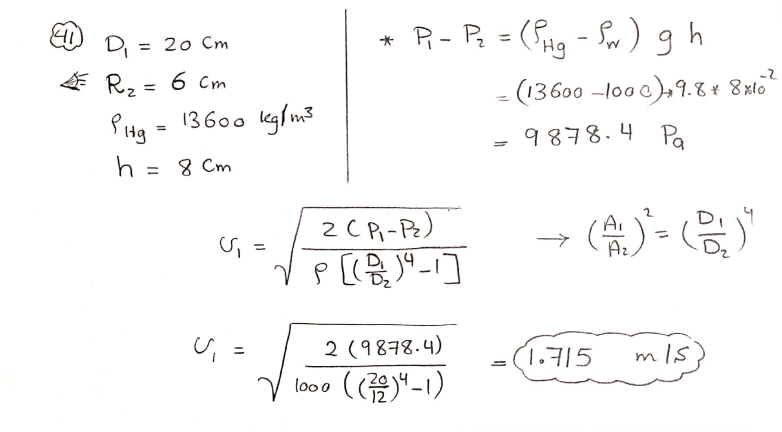 41
D₁ = 20 cm
R₂ = 6 cm
ρHg = 13600 kg/m³
h = 8 cm
* P₁ - P₂ = (ρHg - ρw) g h
= (13600 - 1000) * 9.8 * 8*10⁻²
= 9878.4 Pa
υ₁ = √(2(P₁-P₂) / ρ[(D₁/D₂)⁴-1]) → (A₁/A₂)² = (D₁/D₂)⁴
υ₁ = √(2(9878.4) / 1000((20/12)⁴-1)) = 1.715 m/s